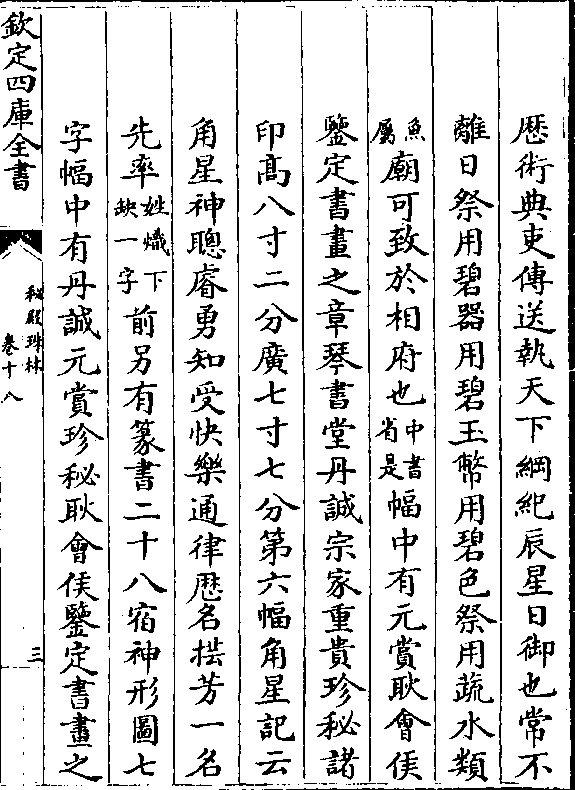 歴術典吏傳送執天下綱紀辰星日御也常不
離日祭用碧器用碧玉幣用碧色祭用蔬水類
魚屬廟可致於相府也中書省是幅中有元賞耿會侯
鑒定書畫之章琴書堂丹誠宗家重貴珍秘諸
印髙八寸二分廣七寸七分第六幅角星記云
角星神聰睿勇知受快樂通律歴名拱芳一名
先率姓熾下缺一字前另有篆書二十八宿神形圖七
字幅中有丹誠元賞珍秘耿會侯鑒定書畫之
欽定四庫全書
秘殿珠林
卷十八
三